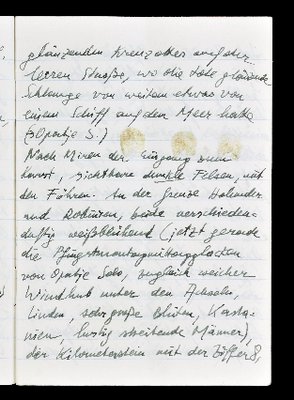 glänzenden Kreuzotter auf der
leeren Straße, wo die tote glänzende
Schlange von weitem etwas von
einem Schiff auf dem Meer hatte
(Opatje S.)
Nach Miren der Eingang zum
Karst, sichtbare dunkle Felsen, mit
den Föhren. An der Grenze Holunder
und Robinien, beide verschieden-
duftig weißblühend (jetzt gerade
die Pfingstmontagmittagsglocken
von Opatje Selo, zugleich weicher
Windhub unter den Achseln,
Linden, sehr große Blüten, Kasta-
nien, lustig streitende Männer),
der Kilometerstein mit der Ziffer 8,